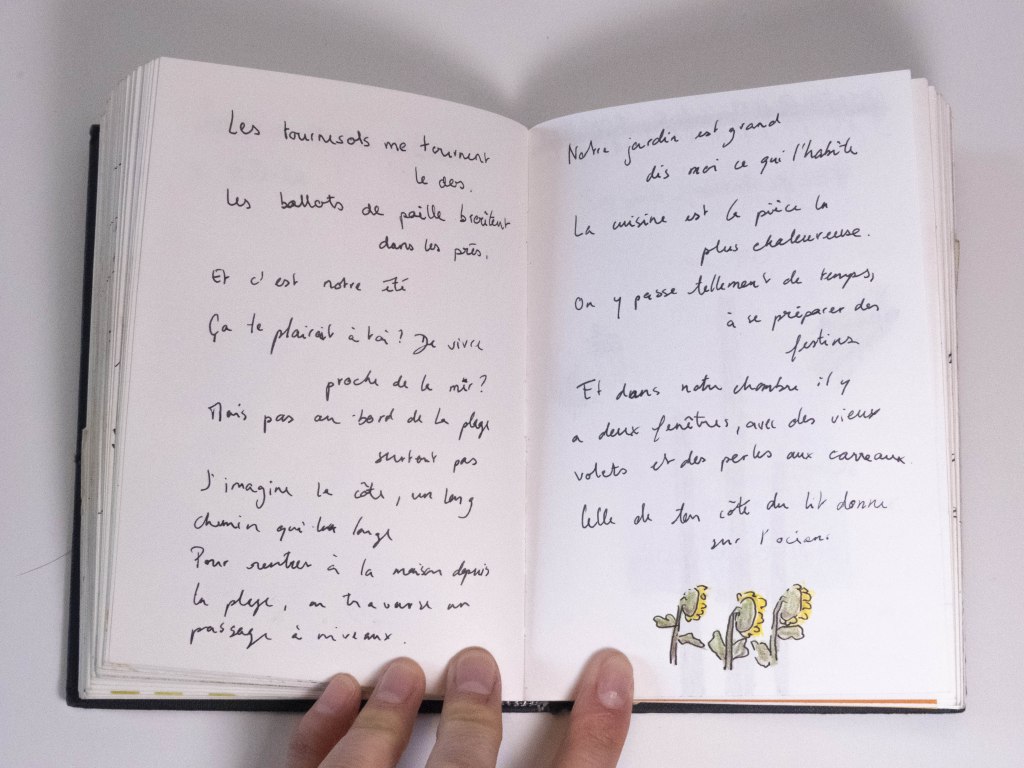 Les tournesols me tournent
le dos.
Les ballots de paille broutent
dans les prés.
Et c'est notre été
Ça te plairait à toi? De vivre
proche de la mer?
Mais pas au bord de la plage
surtout pas
J'imagine la côte, un long
chemin qui la longe
Pour rentrer à la maison depuis
la plage, on traverse un
passage à niveaux.
Notre jardin est grand
dis moi ce qui l'habite
La cuisine est la pièce la
plus chaleureuse.
On y passe tellement de temps,
à se préparer des
festins
Et dans notre chambre il y
a deux fenêtres, avec des vieux
volets et des perles aux carreaux.
Celle de ton côté du lit donne
sur l'océan.